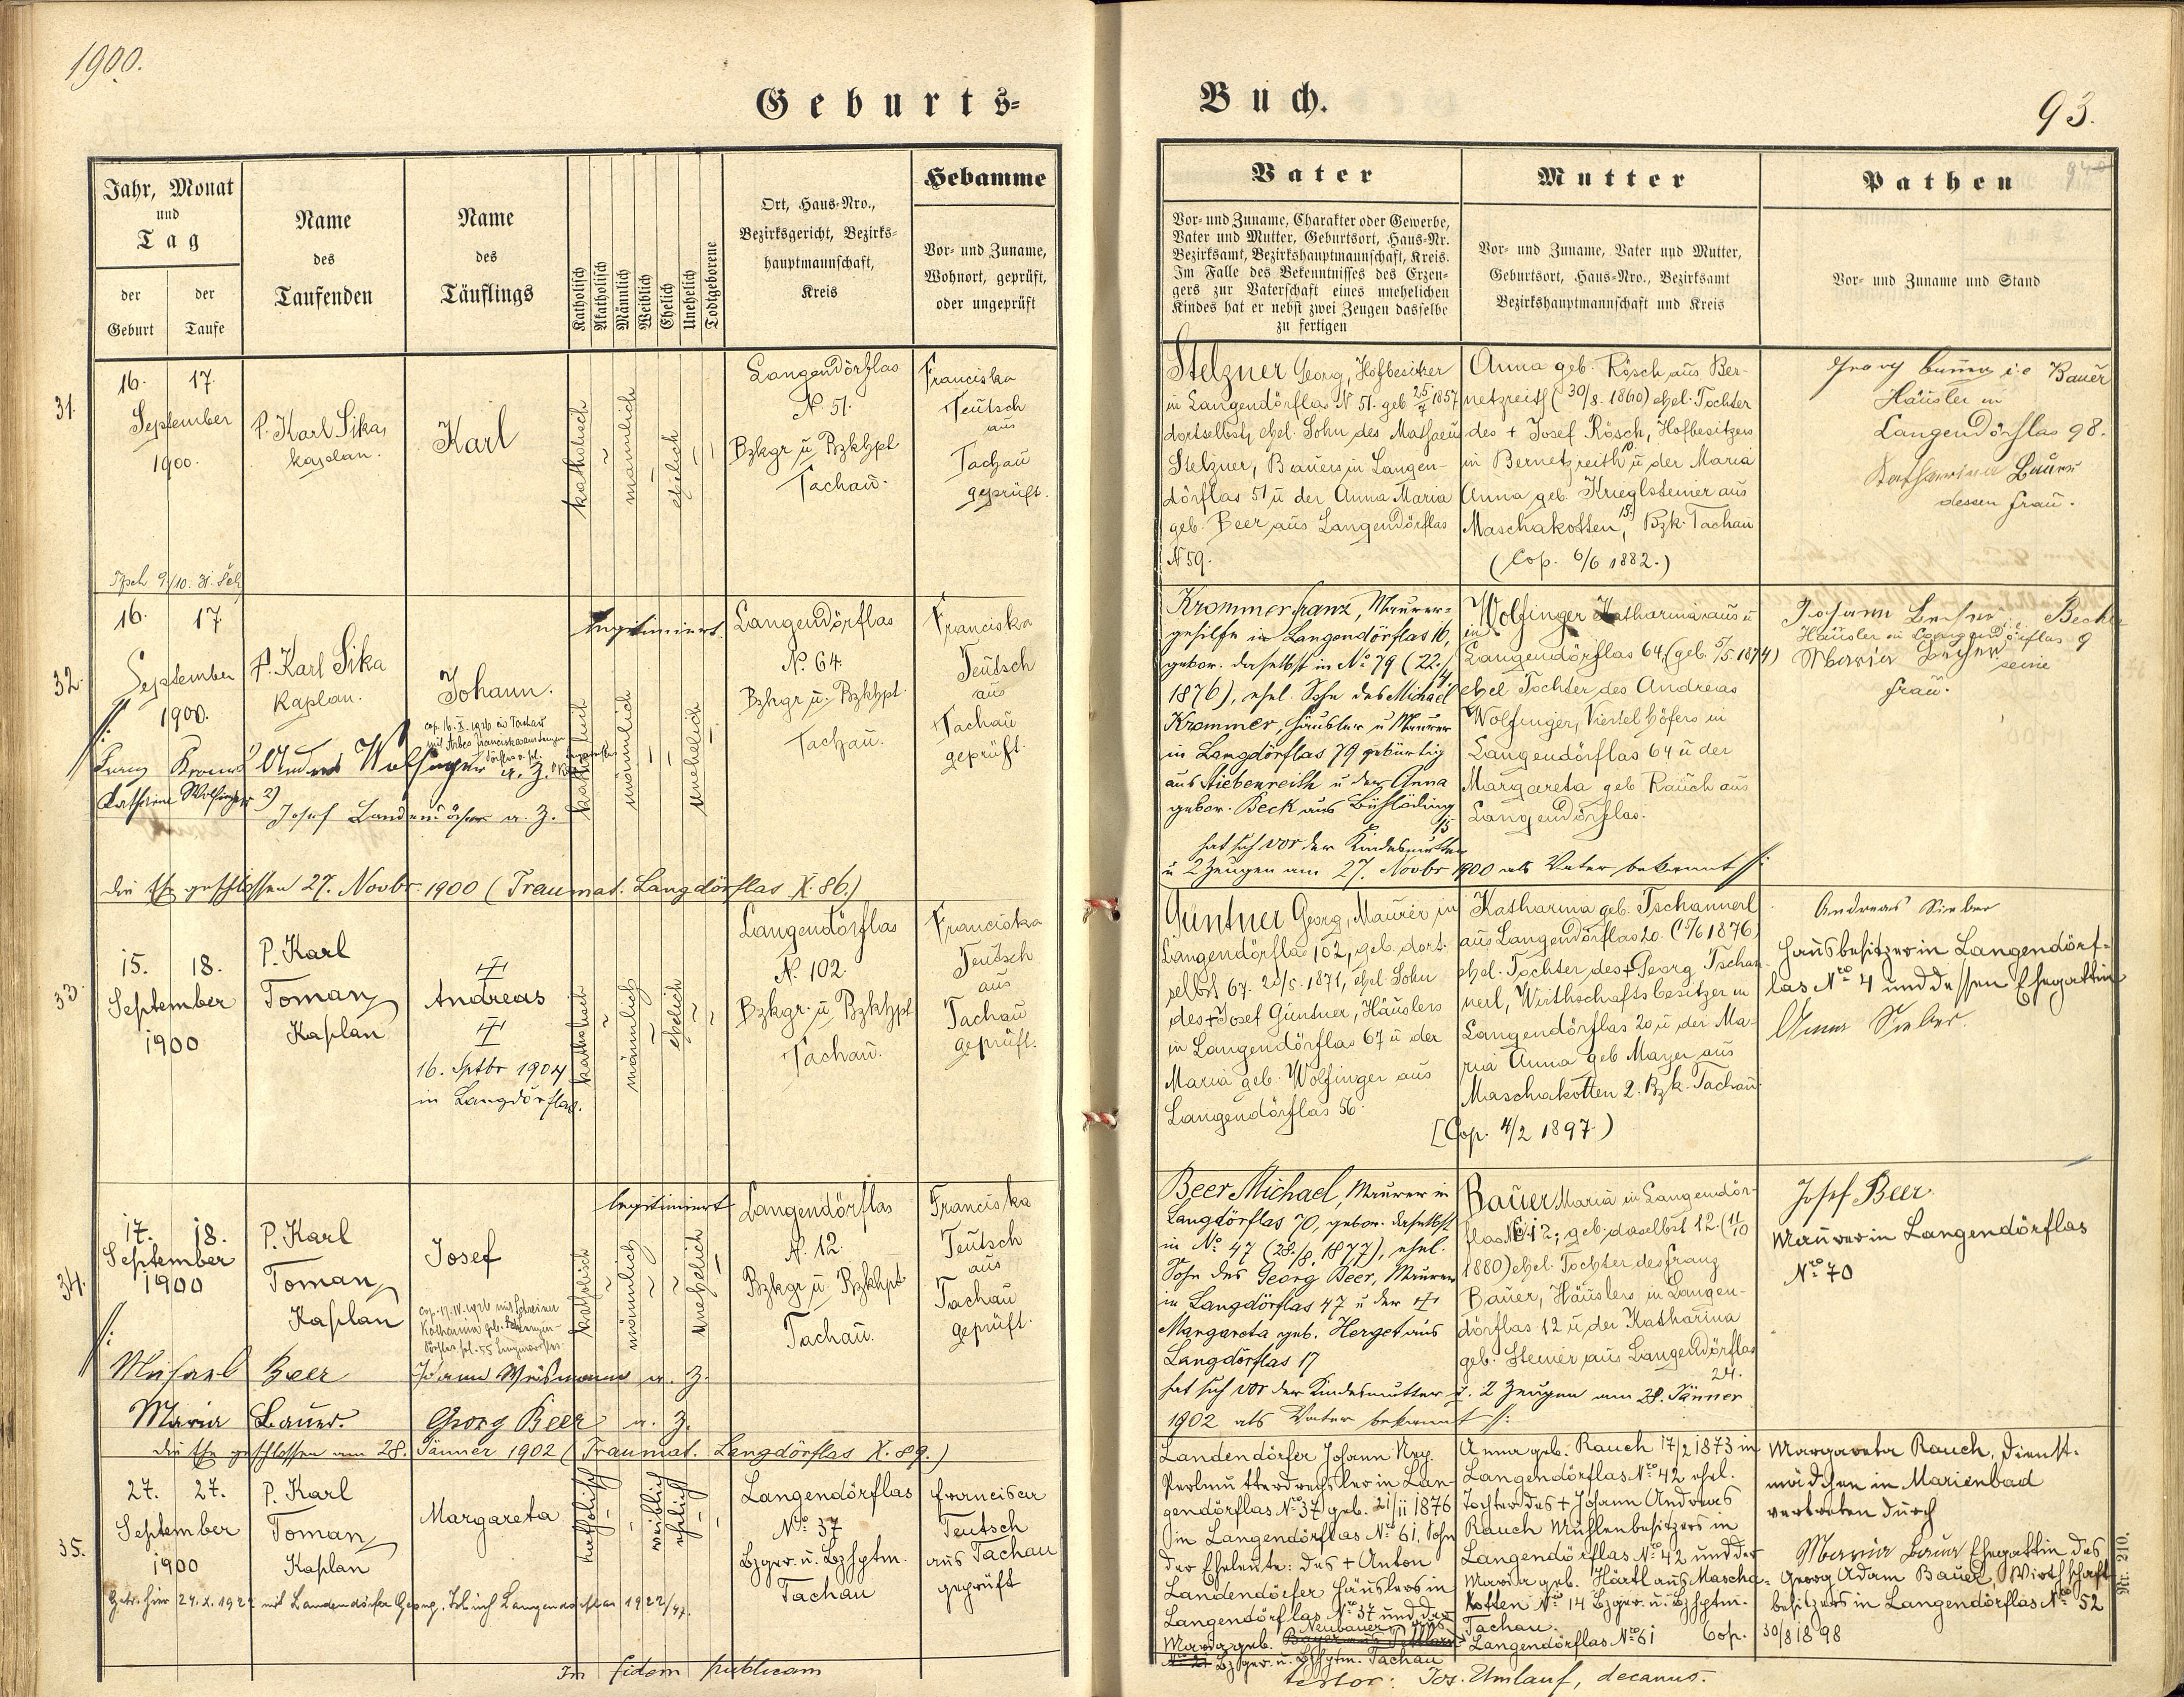 1900.
Geburts-
Jahr, Monat
und
Tag
der
Geburt
der
Taufe
Name
des
Taufenden
Name
des
Täuflings
Katholisch
Akatholisch
Männlich
Weiblich
Ehelich
Unehelich
Todtgeborene
Ort, Haus-Nro.,
Bezirksgericht, Bezirks-
hauptmannschaft,
Kreis
Hebamme
Vor- und Zuname,
Wohnort, geprüft,
oder ungeprüft
31.
16. 17.
September
1900.
P. Karl Sika,
Kaplan.
Karl
katholisch
männlich
ehelich
Langendörflas
N. 51.
Bzkgr u. Bzkhpt
Tachau.
Franciska
Teutsch
aus
Tachau
geprüft.
32.
16. 17.
September
1900.
P. Karl Sika
Kaplan.
Johann.
legitimiert
katholisch
männlich
unehelich
Langendörflas
N. 64.
Bzkgr u. Bzkhpt.
Tachau.
Franciska
Teutsch
aus
Tachau
geprüft.
Andreas Wolfinger a. Z.
Katharina Wolfinger 2)
Josef Landendörfer a. Z.
die Ehe geschlossen 27. Novbr. 1900 (Traumat. Langdörflas X. 86.)
33.
15. 18.
September
1900
P. Karl
Toman
Kaplan
Andreas
16. Sptbr 1904
in Langdörflas.
katholisch
männlich
ehelich
Langendörflas
N. 102.
Bzkgr. u. Bzkhpt
Tachau.
Franciska
Teutsch
aus
Tachau
geprüft.
34.
17. 18.
September
1900
P. Karl
Toman
Kaplan
Josef
legitimiert
katholisch
männlich
unehelich
Langendörflas
N. 12.
Bzkgr u. Bzkhpt.
Tachau.
Franciska
Teutsch
aus
Tachau
geprüft.
Michael Beer
a. Z.
Maria Bauer. Georg Beer a. Z.
die Ehe geschlossen am 28. Jänner 1902 (Traumat. Langdörflas X. 89.)
35.
27. 27.
September
1900
P. Karl
Toman
Kaplan
Margareta
katholisch
weiblich
ehelich
Langendörflas
Nro 37
Bzger. u. Bzhptm.
Tachau
Francisca
Teutsch
aus Tachau
geprüft
In fidem publicam
Buch.
93.
Vater
Vor- und Zuname, Charakter oder Gewerbe,
Vater und Mutter, Geburtsort, Haus-Nr.
Bezirksamt, Bezirkshauptmannschaft, Kreis.
Im Falle des Bekenntnisses des Erzeu-
gers zur Vaterschaft eines unehelichen
Kindes hat er nebst zwei Zeugen dasselbe
zu fertigen
Mutter
Vor- und Zuname, Vater und Mutter,
Geburtsort, Haus-Nro., Bezirksamt
Bezirkshauptmannschaft und Kreis
Pathen
Vor- und Zuname und Stand
Stelzner Georg, Hofbesitzer
in Langendörflas N 51. geb. 25/7 1857
dortselbst, ehel. Sohn des Mathaeus
Stelzner, Bauers in Langen-
dörflas 51 u der Anna Maria
geb. Beer aus Langendörflas
N 59.
Anna geb. Rösch aus Ber-
netzreith (30/8. 1860) ehel. Tochter
des + Josef Rösch, Hofbesitzers
in Bernetzreith 10. u der Maria
Anna geb. Krieglsteiner aus
Maschakotten 15., Bzk. Tachau
(Cop. 6/6 1882.)
Georg i.e Bauer
Häusler in
Langendörflas 98.
Katharina Bauer
dessen Frau.
Krommer Franz, Maurer-
gehilfe in Langendörflas 16,
gebor. daselbst in No 79 (22./4.
1876), ehel. Sohn des Michael
Krommer, Häusler u Maurer
in Langdörflas 79 gebürtig
aus Tiebenreith u der Anna
gebor. Beck aus
15
hat sich vor der Kindesmutter
u 2 Zeugen am 27. Novbr 1900 als Vater bekannt
Wolfinger Katharina aus u
in
Langendörflas 64, (geb. 5/5. 1874)
ehel Tochter des Andreas
Wolfinger, Viertelhöfers in
Langendörflas 64 u der
Margareta geb Rauch aus
Langendörflas.
Johann
Häusler in Langendörflas 9
Maria seine
Frau.
Güntner Georg, Maurer in
Langendörflas 102, geb. dort-
selbst 67. 20/5. 1871, ehel Sohn
des + Josef Güntner, Häuslers
in Langendörflas 67 u der
Maria geb. Wolfinger aus
Langendörflas 56.
Katharina geb. Tschannerl
aus Langendörflas 20.
ehel. Tochter des + Georg Tschan-
nerl, Wirthschaftsbesitzer in
Langendörflas 20 u der Ma-
ria Anna geb Mayer aus
Maschakotten 2. Bzk. Tachau.
[Cop. 4/2 1897.)
Andreas Sieber
Hausbesitzer in Langendörf-
las Nro 4 und dessen Ehegattin
Anna Sieber.
Beer Michael, Maurer in
Langdörflas 70, gebor. daselbst
in No 47 (28./8. 1877), ehel.
Sohn des Georg Beer, Maurer
in Langdörflas 47 u der
Margareta geb. Herget aus
Langdörflas 17
hat sich vor der Kindesmutter u. 2 Zeugen am 28. Jänner
1902 als Vater bekannt
Bauer Maria in Langendör-
flas No 12; geb. daselbst 12. (11/10
1880) ehel. Tochter des Franz
Bauer, Häuslers in Langen-
dörflas 12 u der Katharina
geb. Steiner aus Langendörflas
24.
Josef Beer
Maurer in Langendörflas
Nro 70
Landendörfer Johann Nep.
Perlmutterdrechsler in Lan-
gendörflas Nro 37 geb. 21/11 1876
in Langendörflas Nro 61, Sohn
der Eheleute: des + Anton
Landendörfer Häuslers in
Langendörflas Nro 37 und der
Neubauer aus
Maria geb.
Bzger. u. Bzhptm. Tachau
Anna geb. Rauch 17/2 1873 in
Langendörflas Nro 42 ehel.
Tochter des + Johann Andreas
Rauch Mühlenbesitzers in
Langendörflas Nro 42 und der
Maria geb. Härtl aus Mascha-
kotten Nro 14 Bzger. u. Bzhptm.
Tachau.
Langendörflas Nro 61 Cop. 30/8 1898
Margareta Rauch, Dienst-
mädchen in Marienbad
vertreten durch
Maria Bauer Ehegattin des
Georg Adam Bauer, Wirthschafts-
besitzers in Langendörflas Nro 52
Nr. 210.
testor: Jos. Umlauf, decanus.